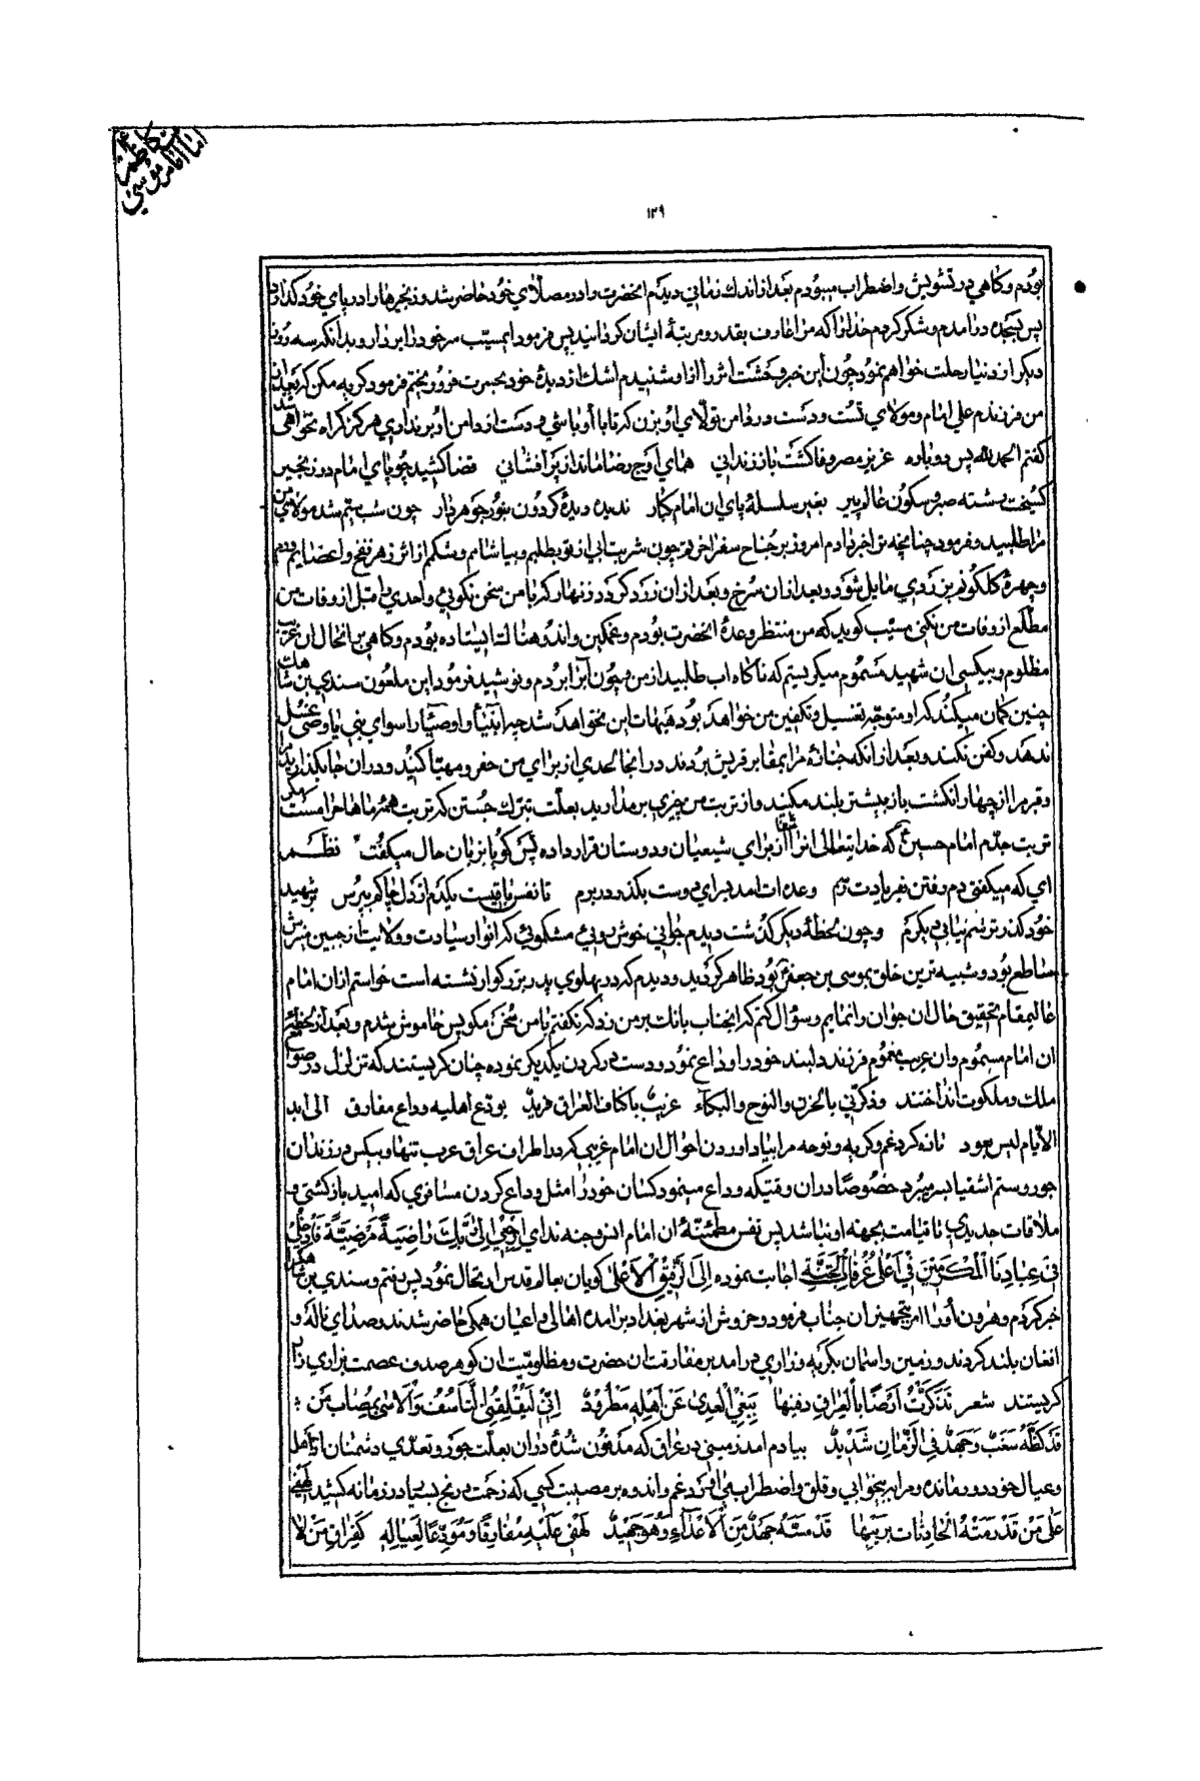 ۱۲۹
بودم و کاهی در تشویش و اضطراب میبودم بعد از اندك زمانی دیدم انحضرت را در مصلای خود حاضر شد و زنجیرها را در پای خود کذارد
پس بسجده درامدم و شکر کردم خدا را که مرا عارف بقدر و مرتبهٔ ایشان کردانید پس فرمود ای مسیب سر خود را بردار و بدانکه سه روز
دیکر از دنیا رحلت خواهم نمود چون این خبر وحشت اثر را از او شنیدم اشك از دیدهٔ خود بحسرت فرو ریختم فرمود کریه مکن که بعد از
من فرزندم علی امام و مولای تست و دست در دامن تولای او بزن که تا با او باشی و دست از دامن او برنداری هرکز کمراه نخواهی شد
کفتم الحمد لله پس دوباره عزیز مصر وفا کشت باز زندانی همای اوج رضا ماند از پرافشانی قضا کشید چو پای امام در زنجیر
کسیخت رشته صبر و سکون عالم پیر بغیر سلسلهٔ پای ان امام کبار ندیده دیدهٔ کردون ستور جوهردار چون شب سیم شد مولای من
مرا طلبید و فرمود چنانچه ترا خبر دادم امروز بر جناح سفر اخرتم چون شربت ابی از تو بطلبم و بیاشامم و شکمم از اثر زهر نفخ و اعضایم ورم
و چهرهٔ کلکونم بزردی مایل شود و بعد از ان سرخ و بعد از ان زرد کردد زنهار که با من سخن نکوئی و احدی را قبل از وفات من
مطلع از وفات من نکنی مسیب کوید که من منتظر وعدهٔ انحضرت بودم و غمکین و اندوهناك ایستاده بودم و کاهی بر انحال ان غریب
مظلوم و بیکسی ان شهید مسموم میکریستم که ناکاه اب طلبید از من چون اب را بردم و نوشید فرمود این ملعون سندی بن شاهك
چنین کمان میکند که او متوجه تغسیل و تکفین من خواهد بود هیهات این نخواهد شد چه انبیا و اوصیا را سوای نبی یا وصی غسل
ندهد و کفن نکند و بعد از انکه جنازهٔ مرا بمقابر قریش بردند در انجا لحدی از برای من حفر و مهیا کنید و در ان جا بکذارید مرا
و قبر مرا از چهار انکشت باز بیشتر بلند مکنید و از تربت من چیزی برمدارید بعلت تبرك جستن که تربت همهٔ ماها حرامست مکر
تربت جدم امام حسین که خدایتعالی انرا شفا از برای شیعیان و دوستان قرار داده پس کویا بزبان حال میکفت نظم
ای که میکفتی دم رفتن بفریادت رسم وعده ات امد بسرای دوست بکذر در برم تا نفس باقیست یکدم از دل چاکم بپرس بر شهید
خود کذر ترسم نیابی دیکرم و چون لحظهٔ دیکر کذشت دیدم جوانی خوش روئی مشکبوئی که انوار سیادت و ولایت از جبین مبینش
ساطع بود و شبیه ترین خلق بموسی بن جعفر بود ظاهر کردید و دیدم که در پهلوی پدر بزرکوار نشسته است خواستم از ان امام
عالیمقام تحقیق حال ان جوان را نمایم و سؤال کنم که انجناب بانك بر من زد که نکفتم با من سخن مکو پس خاموش شدم و بعد از لحظهٔ
ان امام مسموم و ان غریب مغموم فرزند دلبند خود را وداع نمود و دست در کردن یکدیکر نموده چنان کریستند که تزلزل در صوامع
ملك و ملکوت انداختند وذكرني بالحزن والنوح والبكاء غريب باكناف العراق فريد يودع اهليه وداع مفارق الى ابد
الايام ليس يعود تازه کرد غم و کریه و نوحه مرا بیاد اوردن احوال ان امام غریبی که در اطراف عراق عرب تنها و بیکس در زندان
جور و ستم اشقیا بسر میبرد خصوصا در ان وقتیکه وداع مینمود کسان خود را مثل وداع کردن مسافری که امید بازکشتی و
ملاقات جدیدی تا قیامت بجهته او نباشد پس نفس مطمئنهٔ ان امام انس و جنه ندای ارجعي الى ربك راضية مرضية فادخلي
في عبادنا المكرمين في اعلى غرف الجنة اجابت نموده الى الرفيق الاعلى کویان بعالم قدس ارتحال نمود پس رفتم و سندی بن شاهك را
خبر کردم و هرون او را امر بتجهیز ان جناب فرمود و خروش از شهر بغداد برامده اهالی و اعیان همکی حاضر شدند و صدای ناله و
افغان بلند کردند و زمین و اسمان بکریه و زاری درامد بر مفارقت ان حضرت و مظلومیت ان کوهر صدف عصمت بزاری زار
کریستند شعر تذكرت ارضا بالعراق دفنها ببغي العدى عن اهله مطرود اني ليقلقني التاسف والاسى بمصاب من
قد كظه سغب وجهد في الزمان شديد بیادم امد زمینی در عراق که مدفون شدهٔ در ان بعلت جور و تعدی دشمنان از اهل
و عیال خود دور مانده و مرا به بیخوابی و قلق و اضطراب می افکند غم و اندوه بر مصیبت کسی که زحمت و رنج بسیار در زمانه کشید لهفي
على من قد رمته الحادثات بريبها قد مسه جهد من الاعداء وهو جهيد لهفي عليه مفارقا ومودعا لعياله كفراق من لا